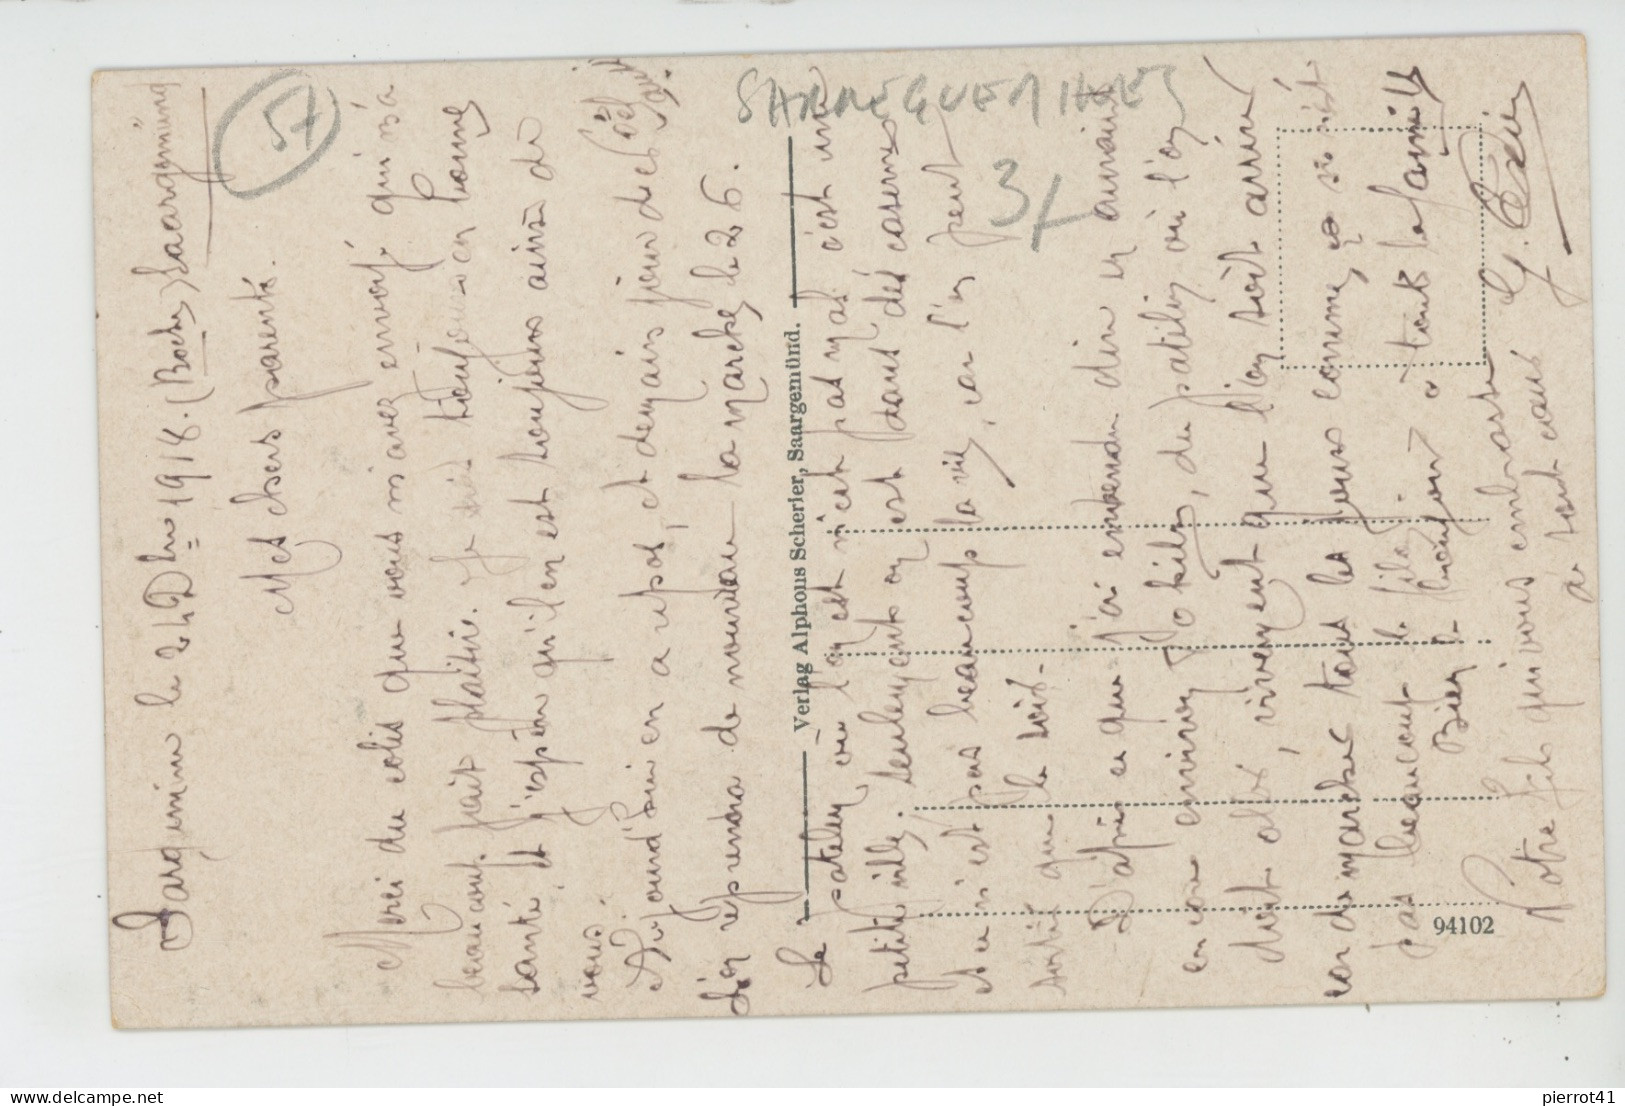 Sargemin le 24 Dbre 1918. (Boche) Saargemünd
Mes chers parents.
Merci du colis que vous m'avez envoyé qui m'a
beaucoup fait plaisir. Je suis toujours en bonne
santé, et j'espère qu'il en est toujours ainsi de
vous.
Aujourd'hui en a repos, et demain jour de Noël aussi.
L'on reprendra de nouveau la marche le 26.
Le patelin où l'on est n'est pas mal c'est une
petite ville. Seulement on est dans des casernes
et on n'est pas beaucoup la vie, car l'on peut
sortir que le soir.
D'après ce que j'ai entendu dire en aurait
encore environ 70 kilos, du patelin où l'on
doit aller, vivement que l'on soit arrivé
car de marcher tous les jours comme ça
pas beaucoup le filon
Bien le bonjour a toute la famille
Votre fils qui vous embrasse
a tous
SARREGUEMINES
57
3/
Verlag Alphons Scherier, Saargemünd.
94102
pierrot41